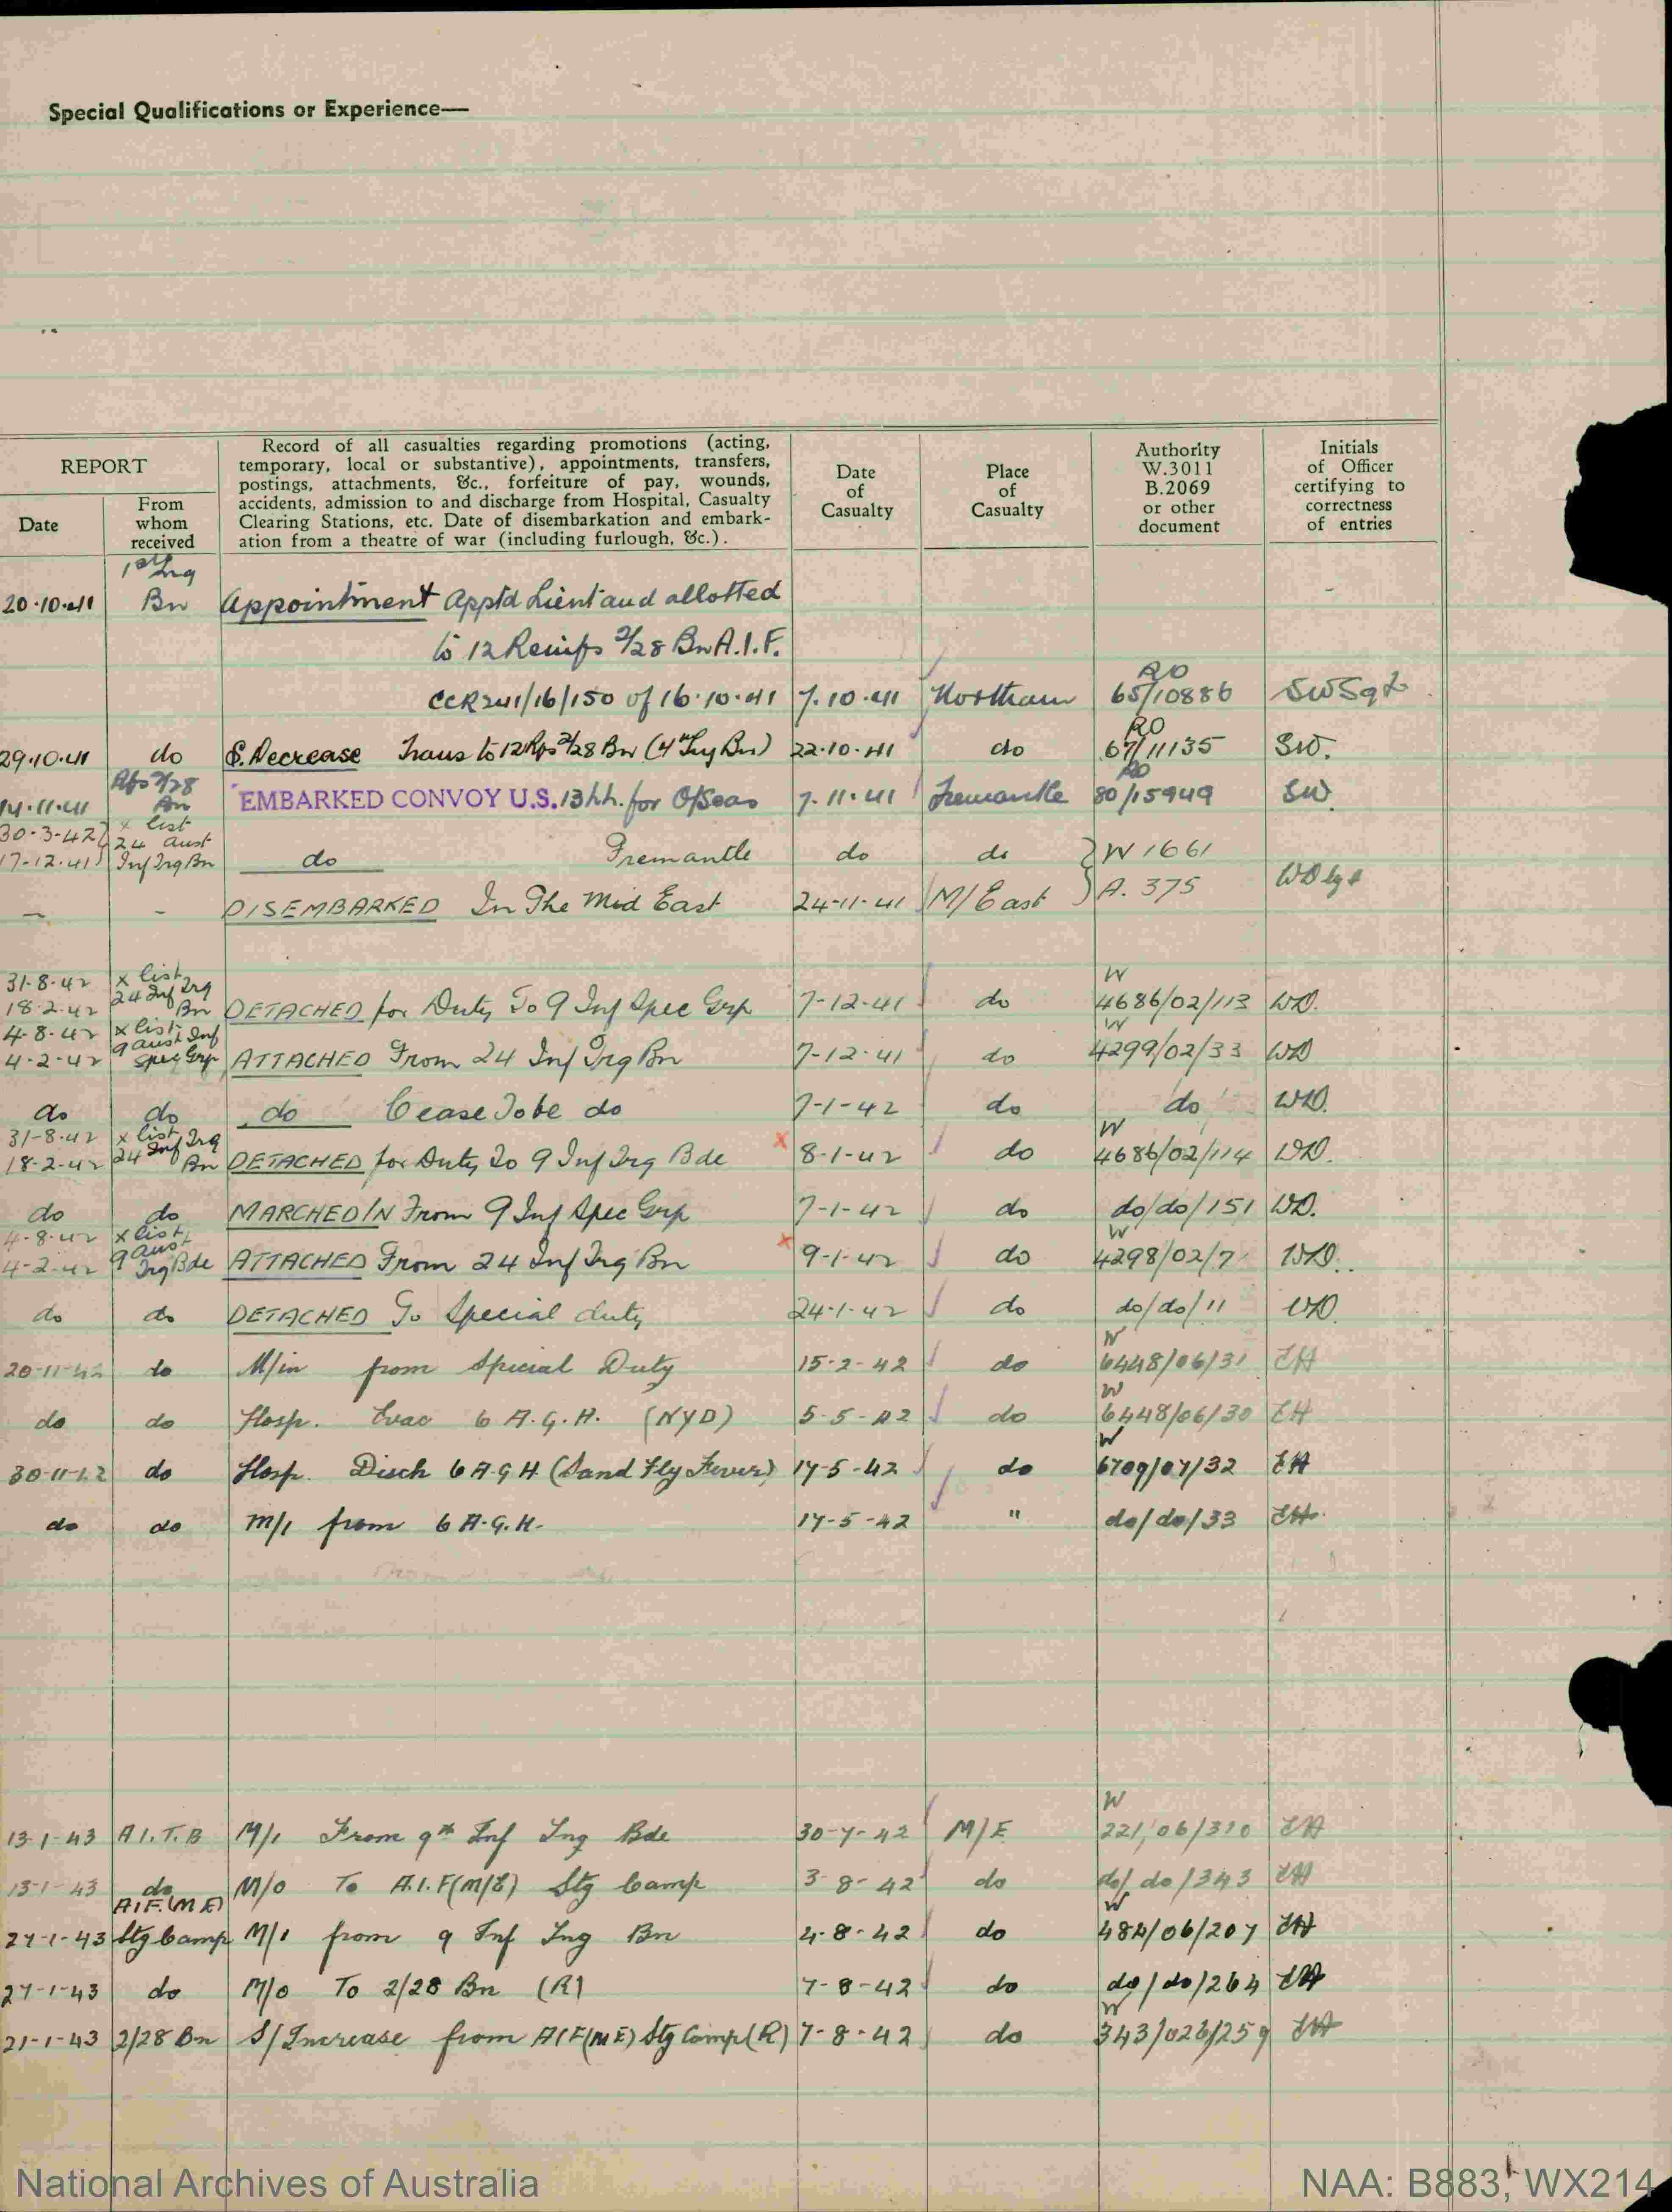 Special Qualifications or Experience—
REPORT
Date
From whom received
Record of all casualties regarding promotions (acting,
temporary, local or substantive), appointments, transfers,
postings, attachments, &c., forfeiture of pay, wounds,
accidents, admission to and discharge from Hospital, Casualty
Clearing Stations, etc. Date of disembarkation and embark-
ation from a theatre of war (including furlough, &c.).
Date of Casualty
Place of Casualty
Authority W.3011 B.2069 or other document
Initials of Officer certifying to correctness of entries
20.10.41 Bn Appointment Apptd Lieut and allotted
to 12 Reinfs 2/28 Bn A.I.F.
CCR241/16/150 of 16.10.41 7.10.41 Northam RO 65/10886
29.10.41 do S. Decrease Trans to 12 Rfs 2/28 Bn (4th Trg Bn) 22.10.41 do RO 67/11135 SW.
14.11.41 Rfs 2/28 Bn EMBARKED CONVOY U.S. 13 for O/Seas 7.11.41 Fremantle RO 80/15949 SW
30-3-42 17-12-41 x list 24 Aust Inf Trg Bn do Fremantle do do W 1661
— - DISEMBARKED In The Mid East 24-11-41 M/East A. 375
31-8-42 18-2-42 x list 24 Inf Trg Bn DETACHED for Duty To 9 Inf Spec Grp 7-12-41 do W 4686/02/113 WD.
4-8-42 4-2-42 x list 9 Aust Inf Spec Grp ATTACHED From 24 Inf Trg Bn 7-12-41 do W 4299/02/33 WD
do do do Cease To be do 7-1-42 do do WD.
31-8-42 18-2-42 x list 24 Inf Trg Bn DETACHED for Duty To 9 Inf Trg Bde x 8-1-42 do W 4686/02/114 WD.
do do MARCHED IN From 9 Inf Spec Grp 7-1-42 do do/do/151 WD.
4-8-42 4-2-42 x list 9 Aust Trg Bde ATTACHED From 24 Inf Trg Bn x 9-1-42 do W 4298/02/7 WD.
do do DETACHED To Special duty 24-1-42 do do/do/11 WD.
20-11-42 do M/in from Special Duty 15-2-42 do W 6448/06/31 EH
do do Hosp. Evac 6 A.G.H. (NYD) 5-5-42 do W 6448/06/30 EH
30-11-42 do Hosp. Disch 6 A.G.H. (Sand Fly Fever) 17-5-42 do W 6709/07/32 EH
do do M/I from 6 A.G.H. 17-5-42 " do/do/33 EH
13-1-43 A.I.T.B M/I From 9th Inf Trg Bde 30-7-42 M/E W 221/06/310 EH
13-1-43 do M/O To A.I.F (M/E) Stg Camp 3-8-42 do do/do/343 EH
27-1-43 A.I.F. (M E) Stg Camp M/I from 9 Inf Trg Bn 4-8-42 do W 484/06/207 EH
27-1-43 do M/O To 2/28 Bn (R) 7-8-42 do do/do/264 EH
21-1-43 2/28 Bn S/Increase from AIF (ME) Stg Camp (R) 7-8-42 do W 343/026/259 EH
National Archives of Australia
NAA: B883, WX214